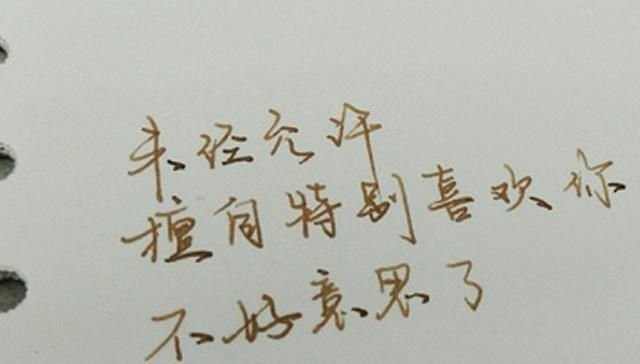 未经允许
擅自特别喜欢你
不好意思了